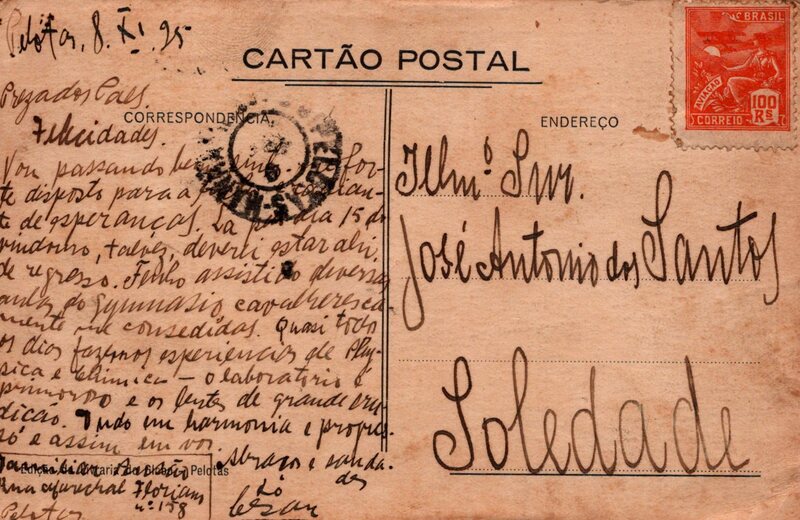 Pelotas, 8. XI. 25
CARTÃO POSTAL
BRASIL
AVIAÇÃO
100
RS
CORREIO
Prezados Paes.
CORRESPONDENCIA
Felicidades.
Vou passando bem
te disposto para a
te de esperanças. La para dia 15 do
vindouro, talvez, deverei estar ahi,
de regresso. Tenho assistido diversas
aulas do Gymnasio cavalheresca-
mente me consedidas. Quasi todo
os dias fazemos experiencias de Phy-
sica e Chimica — o laboratorio é
primoroso e os lentes de grande eru-
dicão. Tudo em harmonia e progres-
so e assim em
Abraços e sauda-
des
Edição da Livraria do Globo - Pelotas
Rua Marechal Floriano
nº 158
Pelotas
ENDEREÇO
Illmº Snr.
José Antonio dos Santos
Soledade
PELOTAS